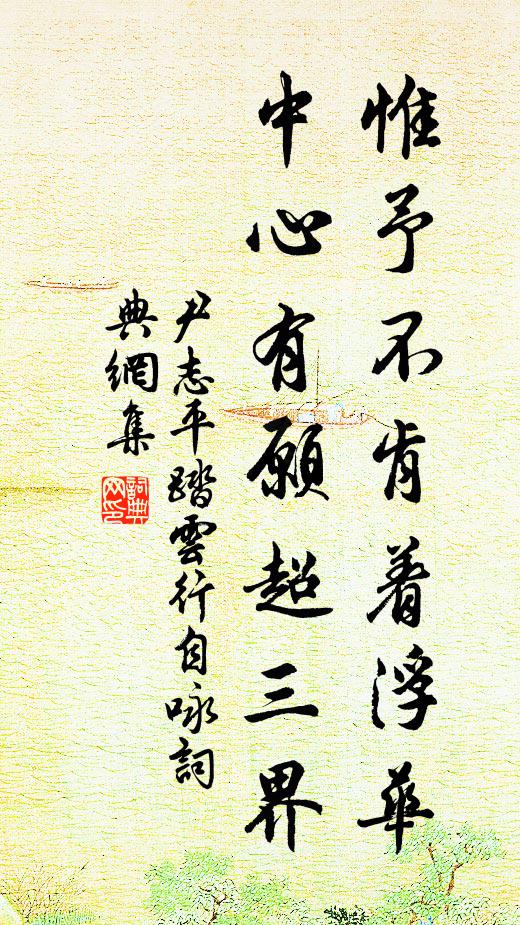 惟予不肯着浮華
中心有願超三界
尹志平踏雲行自咏詞
典網集
詞典網印